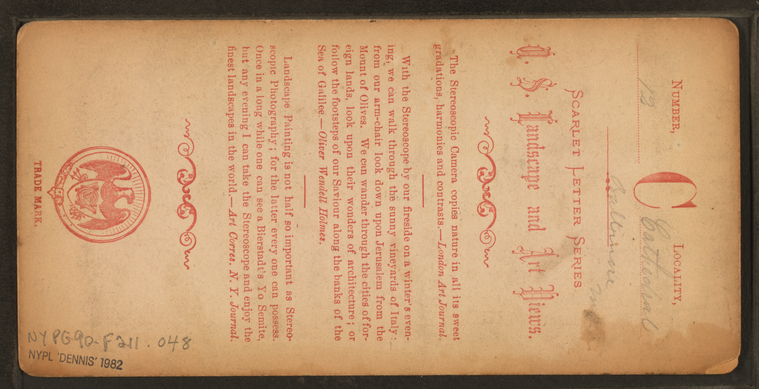 NUMBER, LOCALITY,
12 C Cathedral
Baltimore Md
SCARLET LETTER SERIES.
U. S. Landscape and Art Views.
The Stereoscopic Camera copies nature in all its sweet
gradations, harmonies and contrasts.—London Art Journal.
With the Stereoscope by our fireside on a winter's even-
ing, we can walk through the sunny vineyards of Italy;
from our arm-chair look down upon Jerusalem from the
Mount of Olives. We can wander through the cities of for-
eign lands, look upon their wonders of architecture; or
follow the footsteps of our Saviour along the banks of the
Sea of Galilee.—Oliver Wendell Holmes.
Landscape Painting is not half so important as Stereo-
scopic Photography; for the latter every one can possess.
Once in a long while one can see a Bierstadt's Yo Semite,
but any evening I can take the Stereoscope and enjoy the
finest landscapes in the world.—Art Corres. N. Y. Journal.
TRADE MARK.
NYPG90-F211.048
NYPL 'DENNIS' 1982